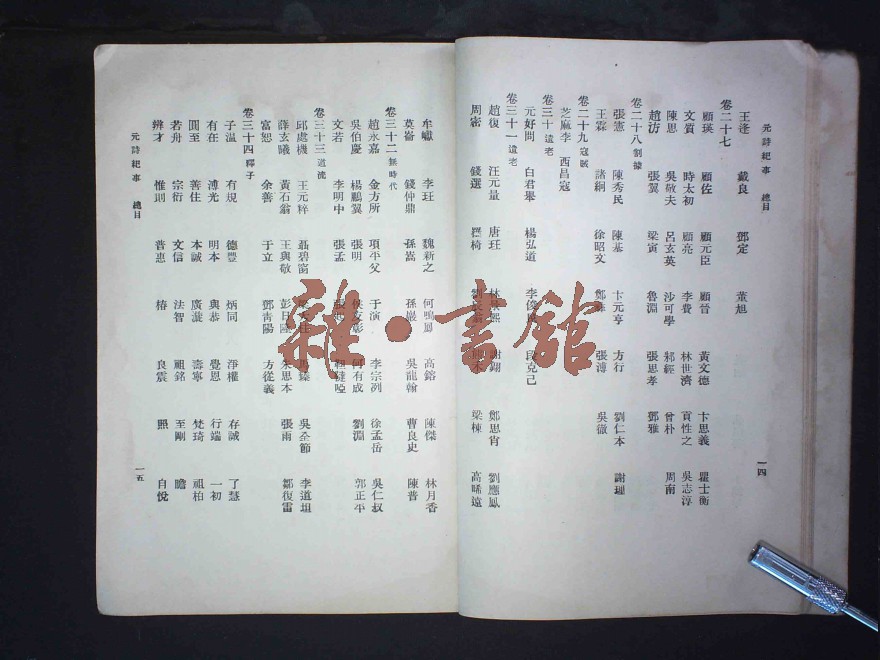 元詩紀事 總目
一四
王逢 戴良 鄧定 董旭
卷二十七
顧瑛 顧佐 顧元臣 顧晉 黃文德 卞思義 瞿士衡
文質 時太初 顧亮 李費 林世濟 貢性之 吳志淳
陳思 吳敬夫 呂玄英 沙可學 邾經 曾朴 周南
趙汸 張翼 梁寅 魯淵 張思孝 鄧雅
卷二十八 割據
張憲 陳秀民 陳基 卞元亨 方行 劉仁本 謝理
王霖 諸綱 徐昭文 鄭 張溥 吳徹
卷二十九 寇賊
芝麻李 西昌寇
卷三十 遺老
元好問 白君舉 楊弘道 李俊 段克己
卷三十一 遺老
趙復 汪元量 唐玨 林 熙 謝翱 鄭思肖 劉應鳳
周密 錢選 羅椅 劉 梁棟 高晞遠
牟巘 李玨 魏新之 何鳴鳳 高鎔 陳傑 林月香
莫崙 錢仲鼎 孫嵩 孫巖 吳龍翰 曹良史 陳普
卷三十二 無時代
趙永嘉 金方所 項平父 于演 李宗冽 徐孟岳 吳仁叔
吳伯慶 楊鵬翼 張明 侯友彰 何有成 劉淵 郭正平
文若 李明中 張孟 張 䩮韃啞
卷三十三 道流
邱處機 王元粹 聶碧窗 馬臻 吳全節 李道坦
薛玄曦 黃石翁 王與敬 彭日隆 朱思本 張雨 鄒復雷
富恕 余善 于立 鄧青陽 方從義
卷三十四 釋子
子溫 有規 德豐 炳同 淨權 存誠 了慧
有在 溥光 明本 與恭 覺恩 行端 一初
圓至 善住 本誠 廣漩 壽寧 梵琦 祖柏
若舟 宗衍 文信 法智 祖銘 至剛 瞻
辨才 惟則 普惠 椿 良震 照 自悅
元詩紀事 總目
一五
雜·書館